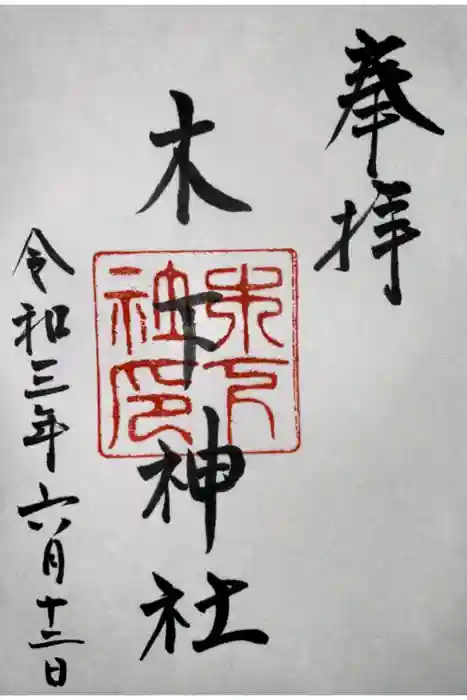 奉拝
木下神社
令和三年六月十二日